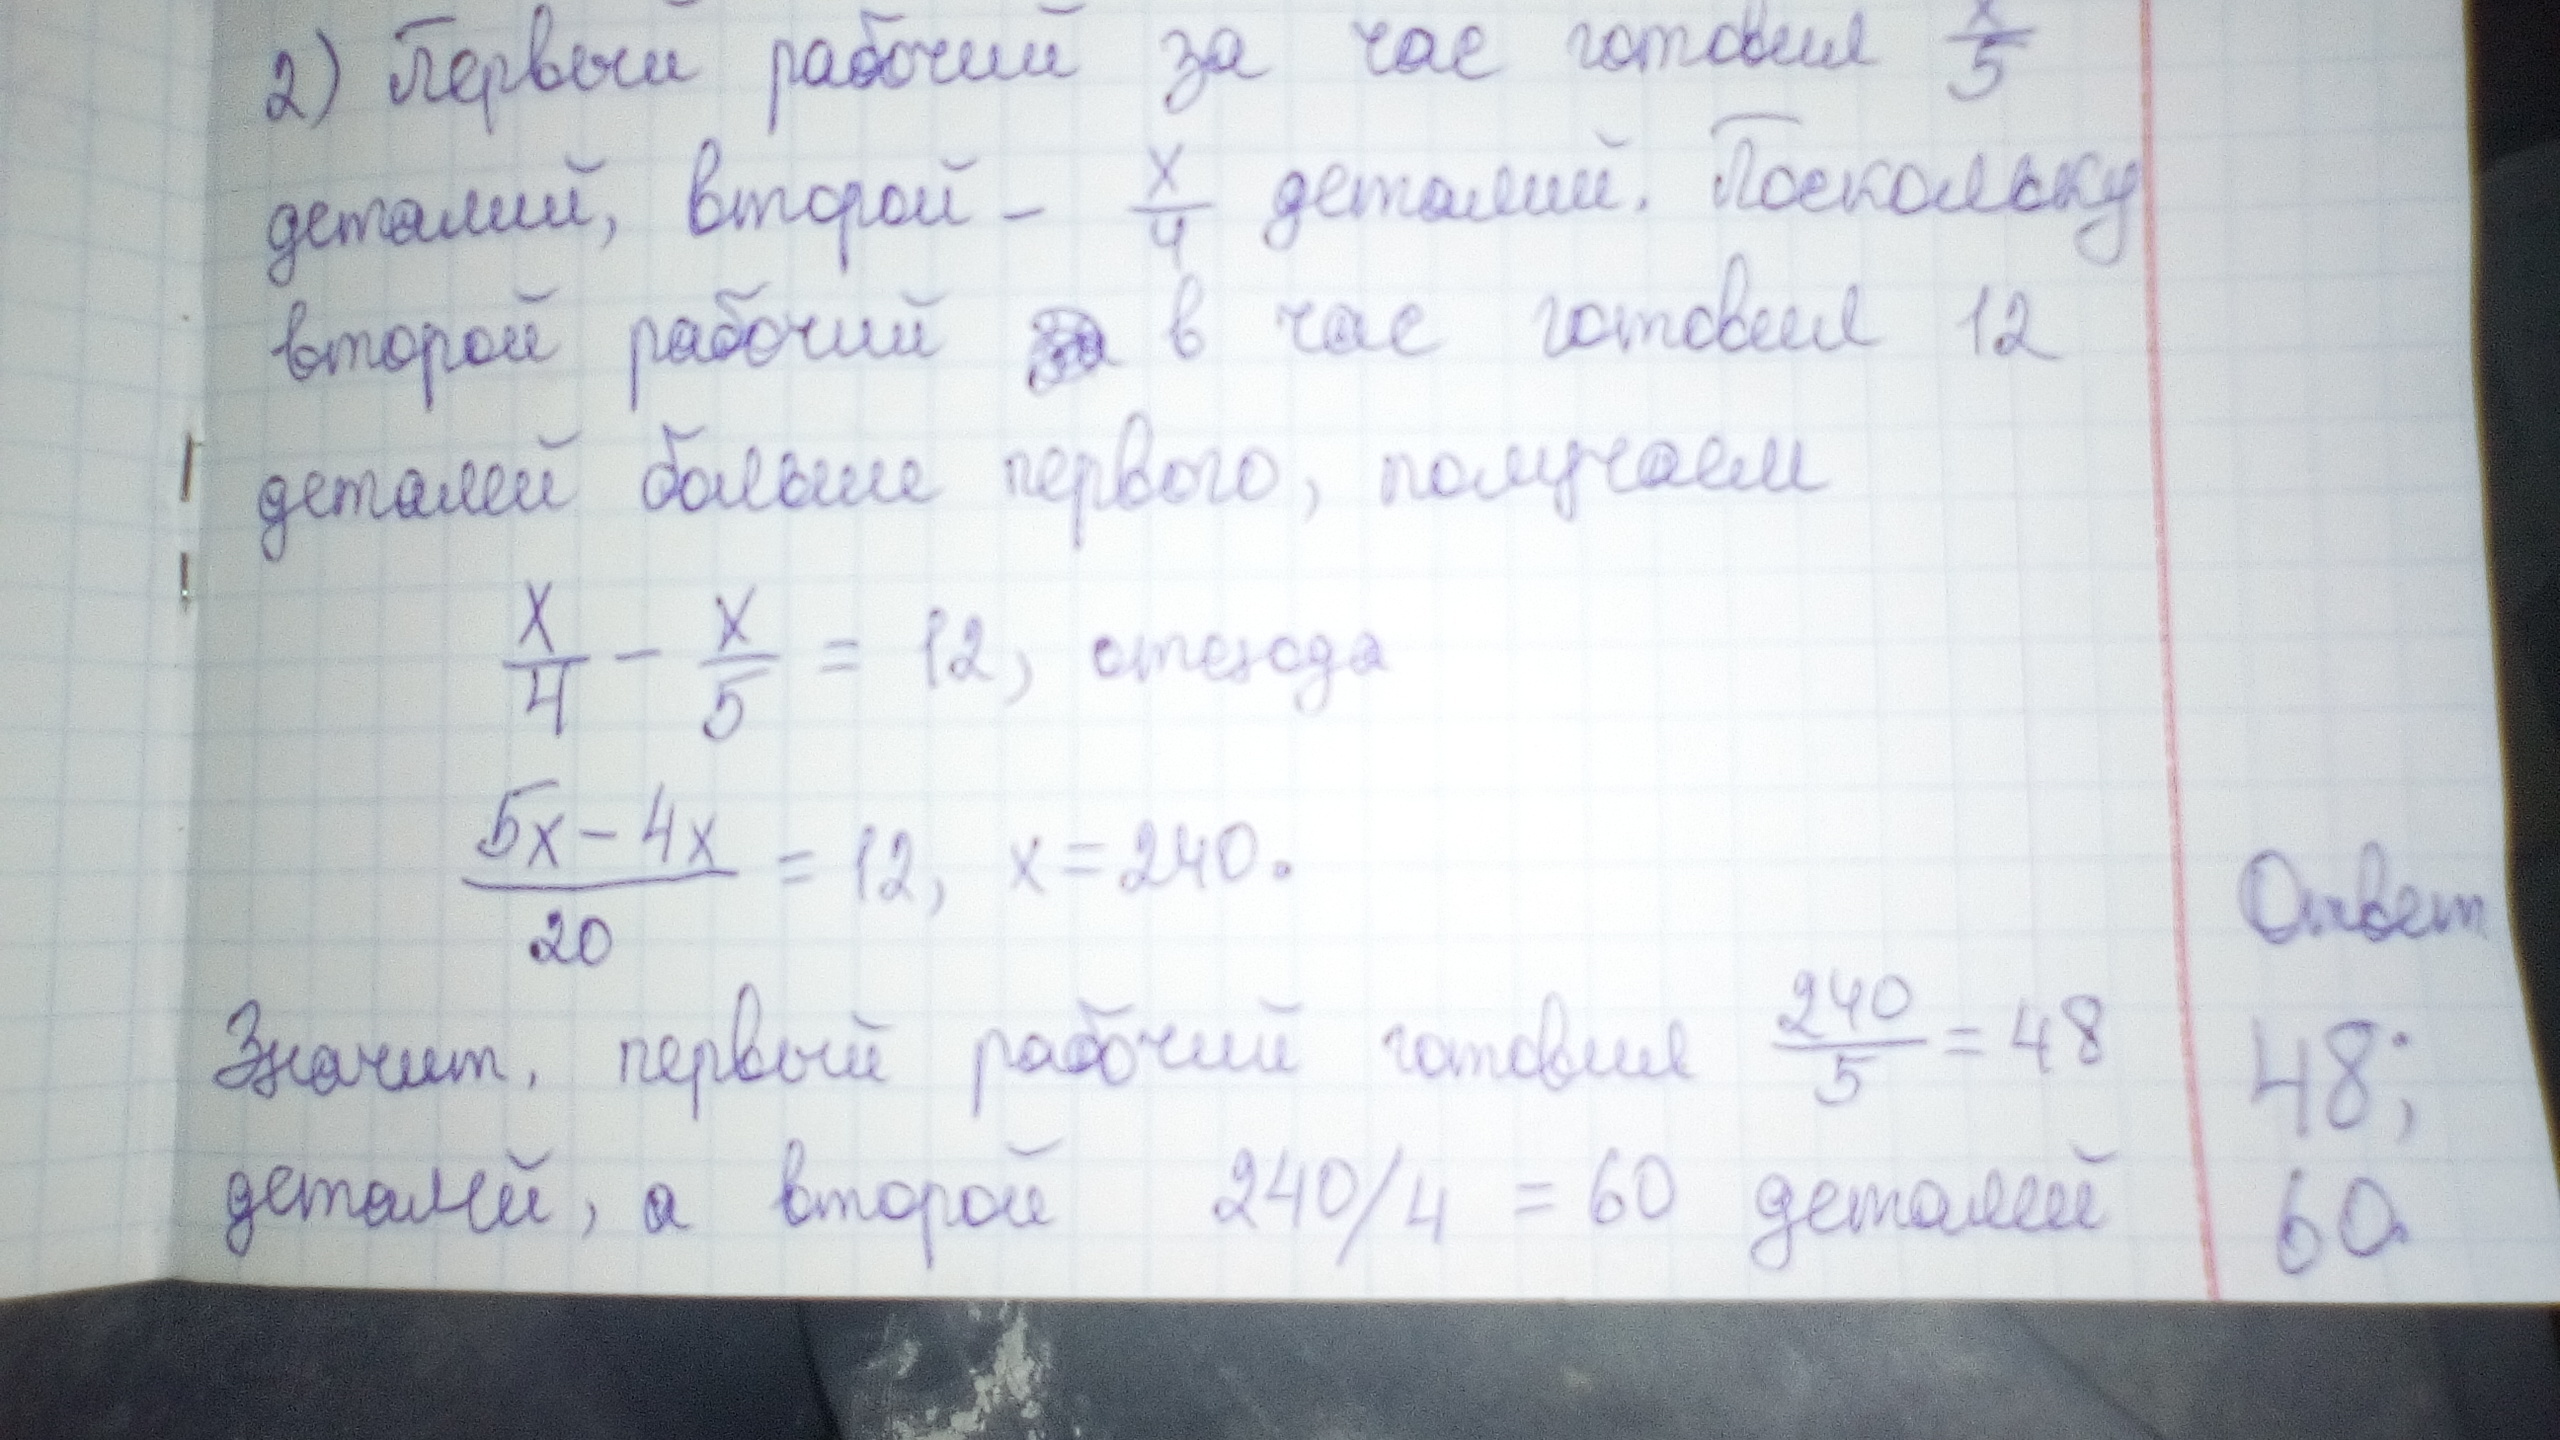 2) Первый рабочий за час готовил x/5
деталий, второй - x/4 деталий. Поскольку
второй рабочий в час готовил 12
деталей больше первого, получаем
x/4 - x/5 = 12, отсюда
(5x - 4x)/20 = 12, x = 240.
Значит, первый рабочий готовил 240/5 = 48
деталей, а второй 240/4 = 60 деталей
Ответ
48;
60